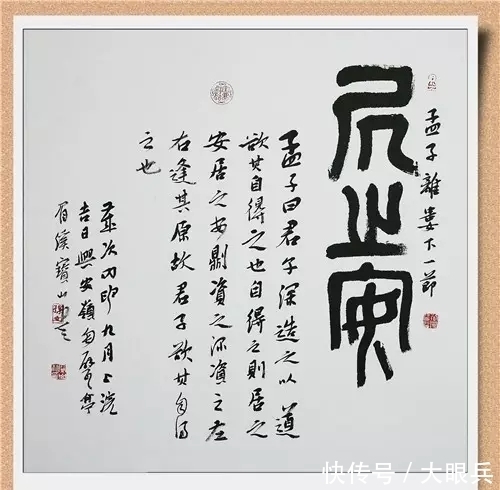 孟子離婁下一節
居之安
孟子曰君子深造之以道
欲其自得之也自得之則居之
安居之安則資之深資之左
右逢其原故君子欲其自得
之也
歲次丁卯九月上浣
吉日興安嶺
寶山
快传号/大眼兵